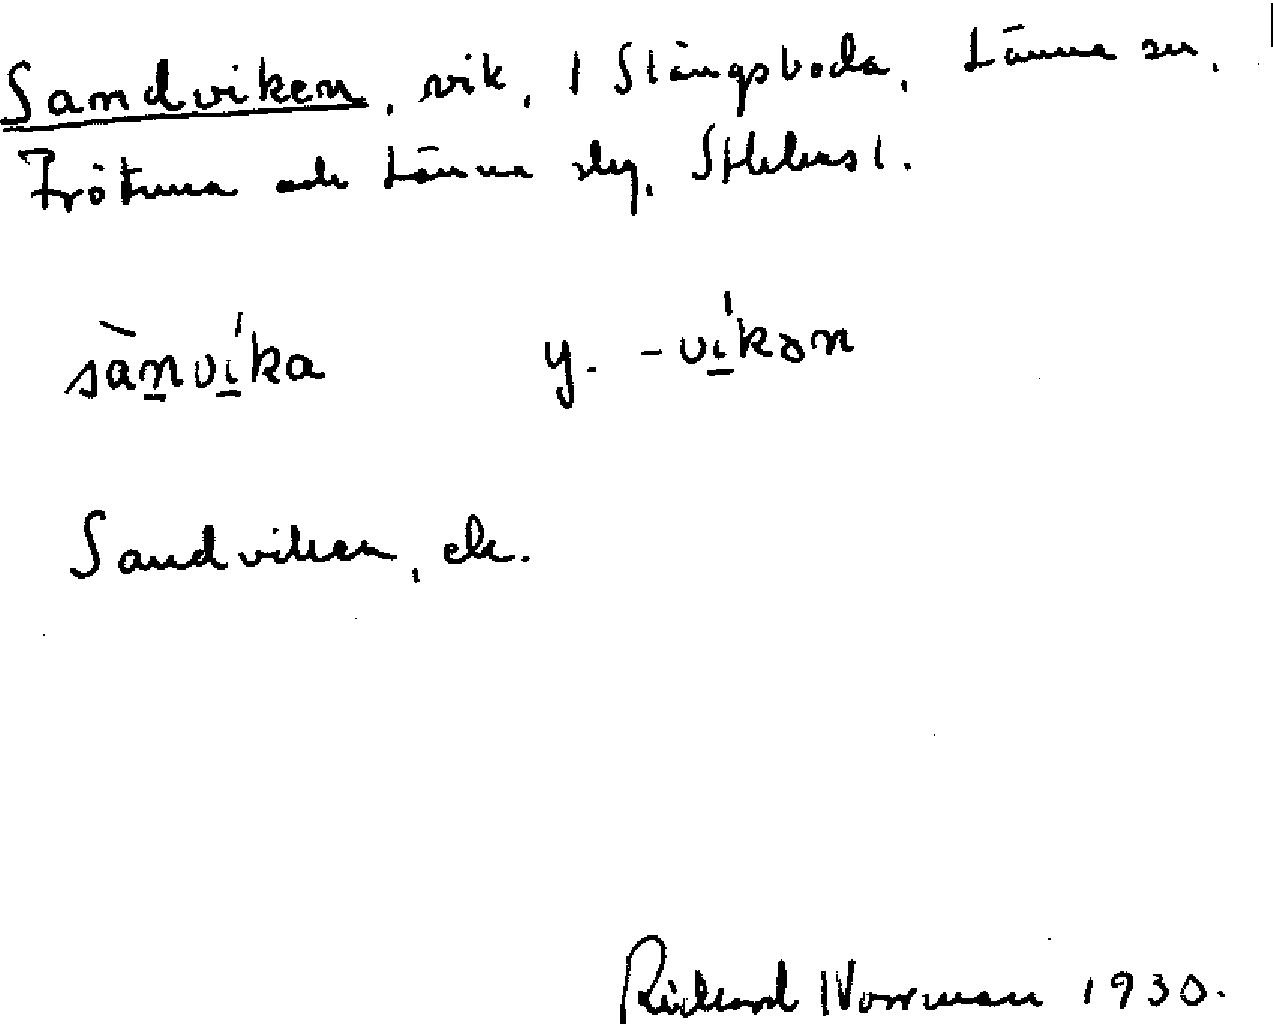 Sandviken, vik, I Stångsboda, Länna sn,
Frötuna och Länna skg, Sthlms l.
sànvíka y. -víkən
Sandviken, ek.
Rickard Norrman 1930.